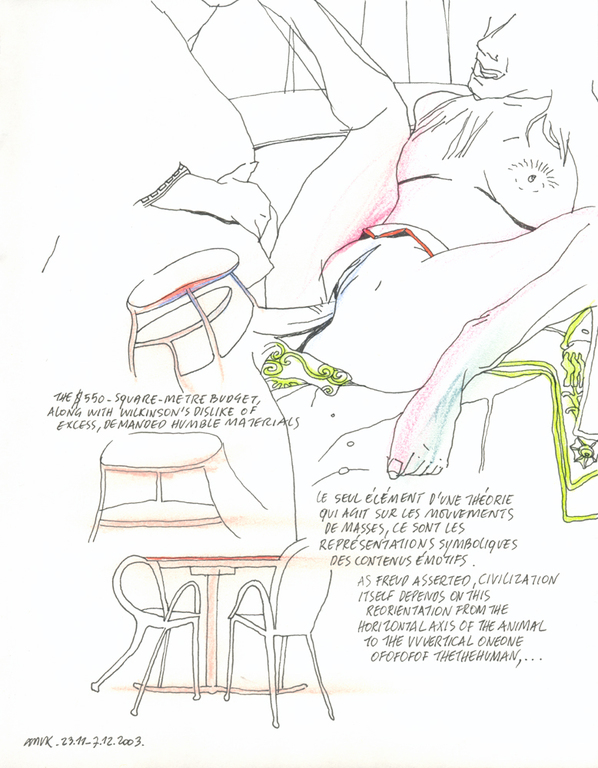 THE $550-SQUARE-METRE BUDGET,
ALONG WITH WILKINSON'S DISLIKE OF
EXCESS, DEMANDED HUMBLE MATERIALS
LE SEUL ÉLÉMENT D'UNE THÉORIE
QUI AGIT SUR LES MOUVEMENTS
DE MASSES, CE SONT LES
REPRÉSENTATIONS SYMBOLIQUES
DES CONTENUS ÉMOTIFS.
AS FREUD ASSERTED, CIVILIZATION
ITSELF DEPENDS ON THIS
REORIENTATION FROM THE
HORIZONTAL AXIS OF THE ANIMAL
TO THE VVVERTICAL ONEONE
OFOFOFOF THETHEHUMAN,...
23.11-7.12.2003.